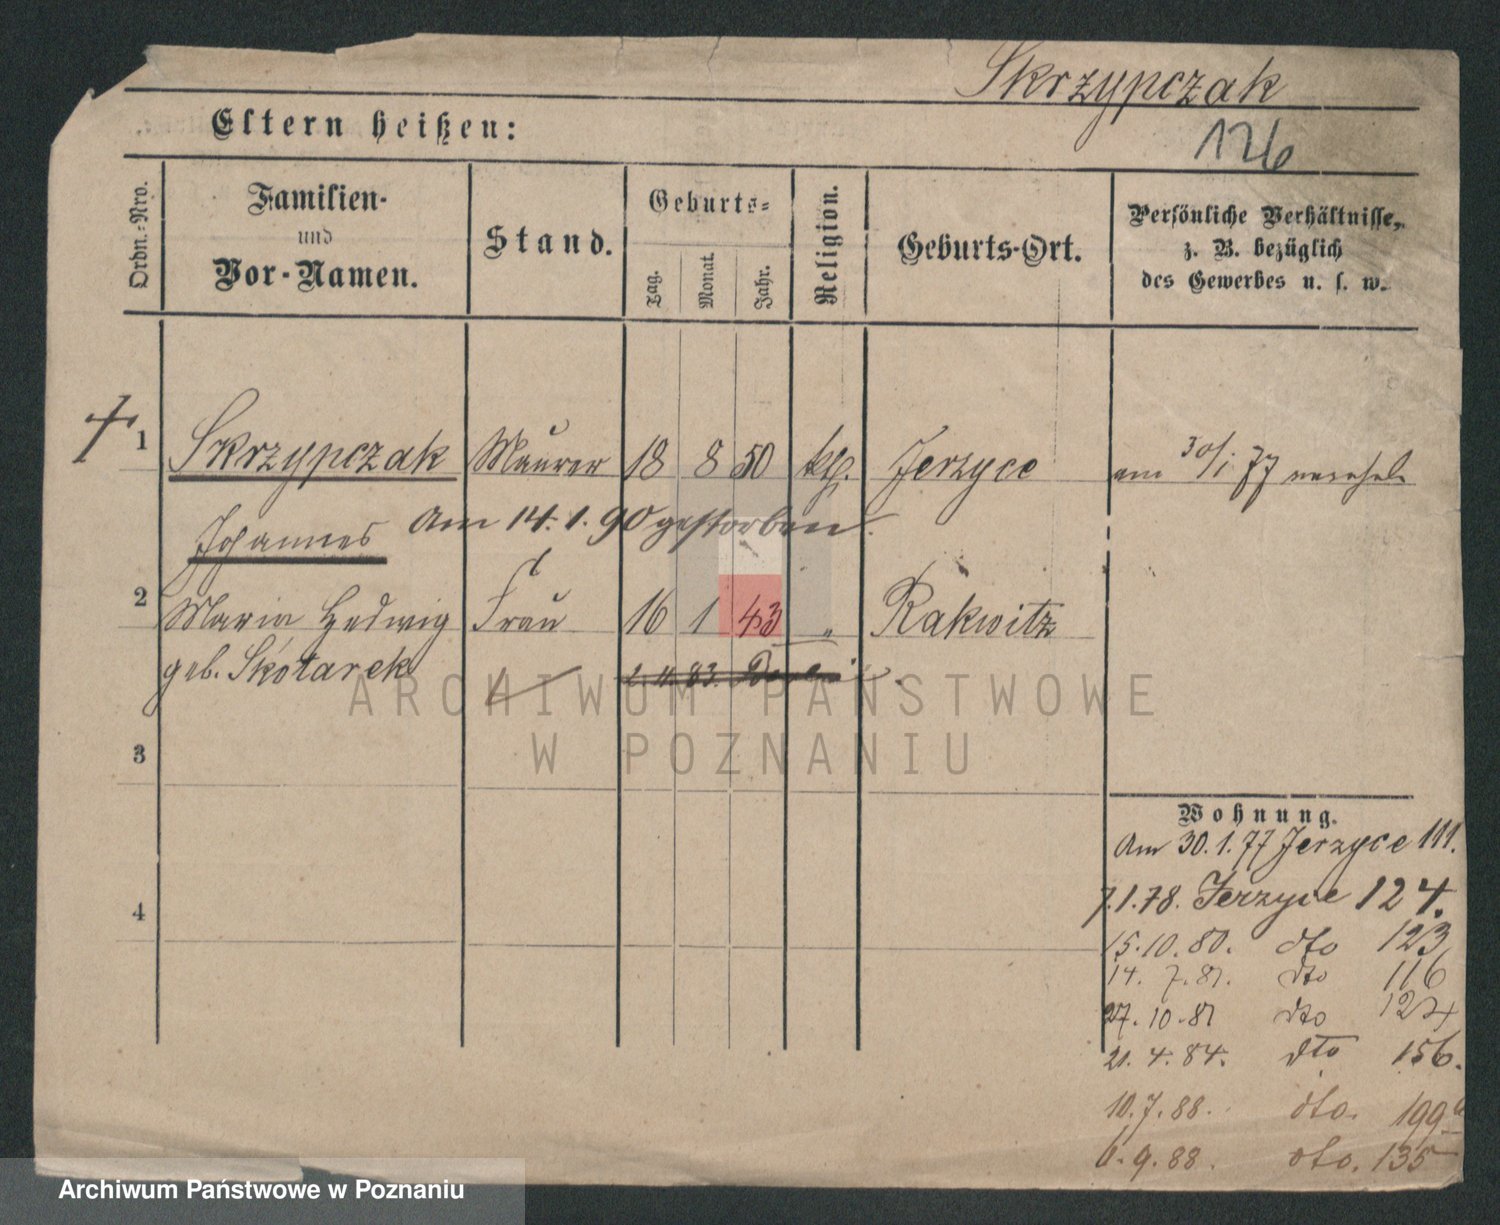 Skrzypczak
126
Eltern heißen:
Ordn.-Nro.
Familien-
und
Vor-Namen.
Stand.
Geburts-
Tag.
Monat.
Jahr.
Religion.
Geburts-Ort.
Persönliche Verhältnisse,
z. B. bezüglich
des Gewerbes u. s. w.
1 Skrzypczak Maurer 18 8 50 kth. Jerzyce am 30/1. 77 verehel.
Johannes Am 14. 1. 90 gestorben.
2 Maria Hedwig Frau 16 1 43 " Rakwitz
geb. Skotarek
ARCHIWUM PAŃSTWOWE
W POZNANIU
3
4
Wohnung.
Am 30. 1. 77 Jerzyce 111.
7. 1. 78. Jerzyce 124.
15. 10. 80. dto 123
14. 7. 81. dto 116
27. 10. 81 dto 124
21. 4. 84. dto 156.
10. 7. 88. dto. 199a
6. 9. 88. dto. 135
Archiwum Państwowe w Poznaniu